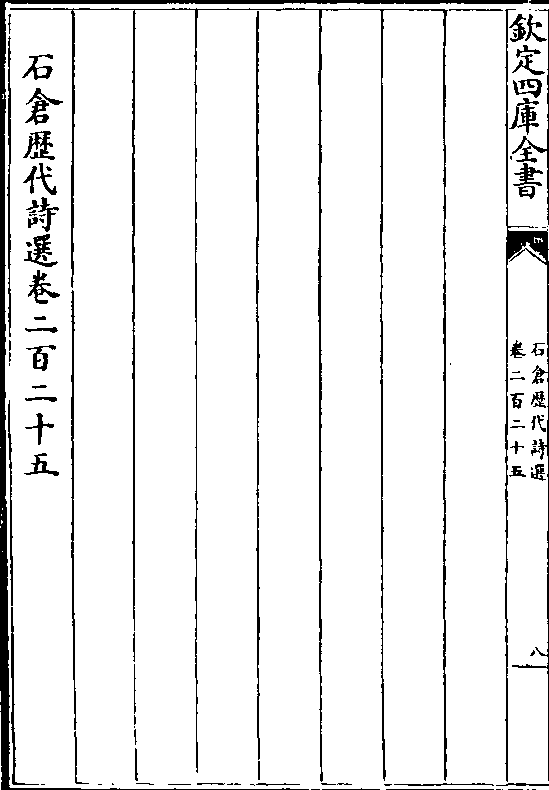 欽定四庫全書
石倉歴代詩選
卷二百二十五
八
石倉歴代詩選卷二百二十五